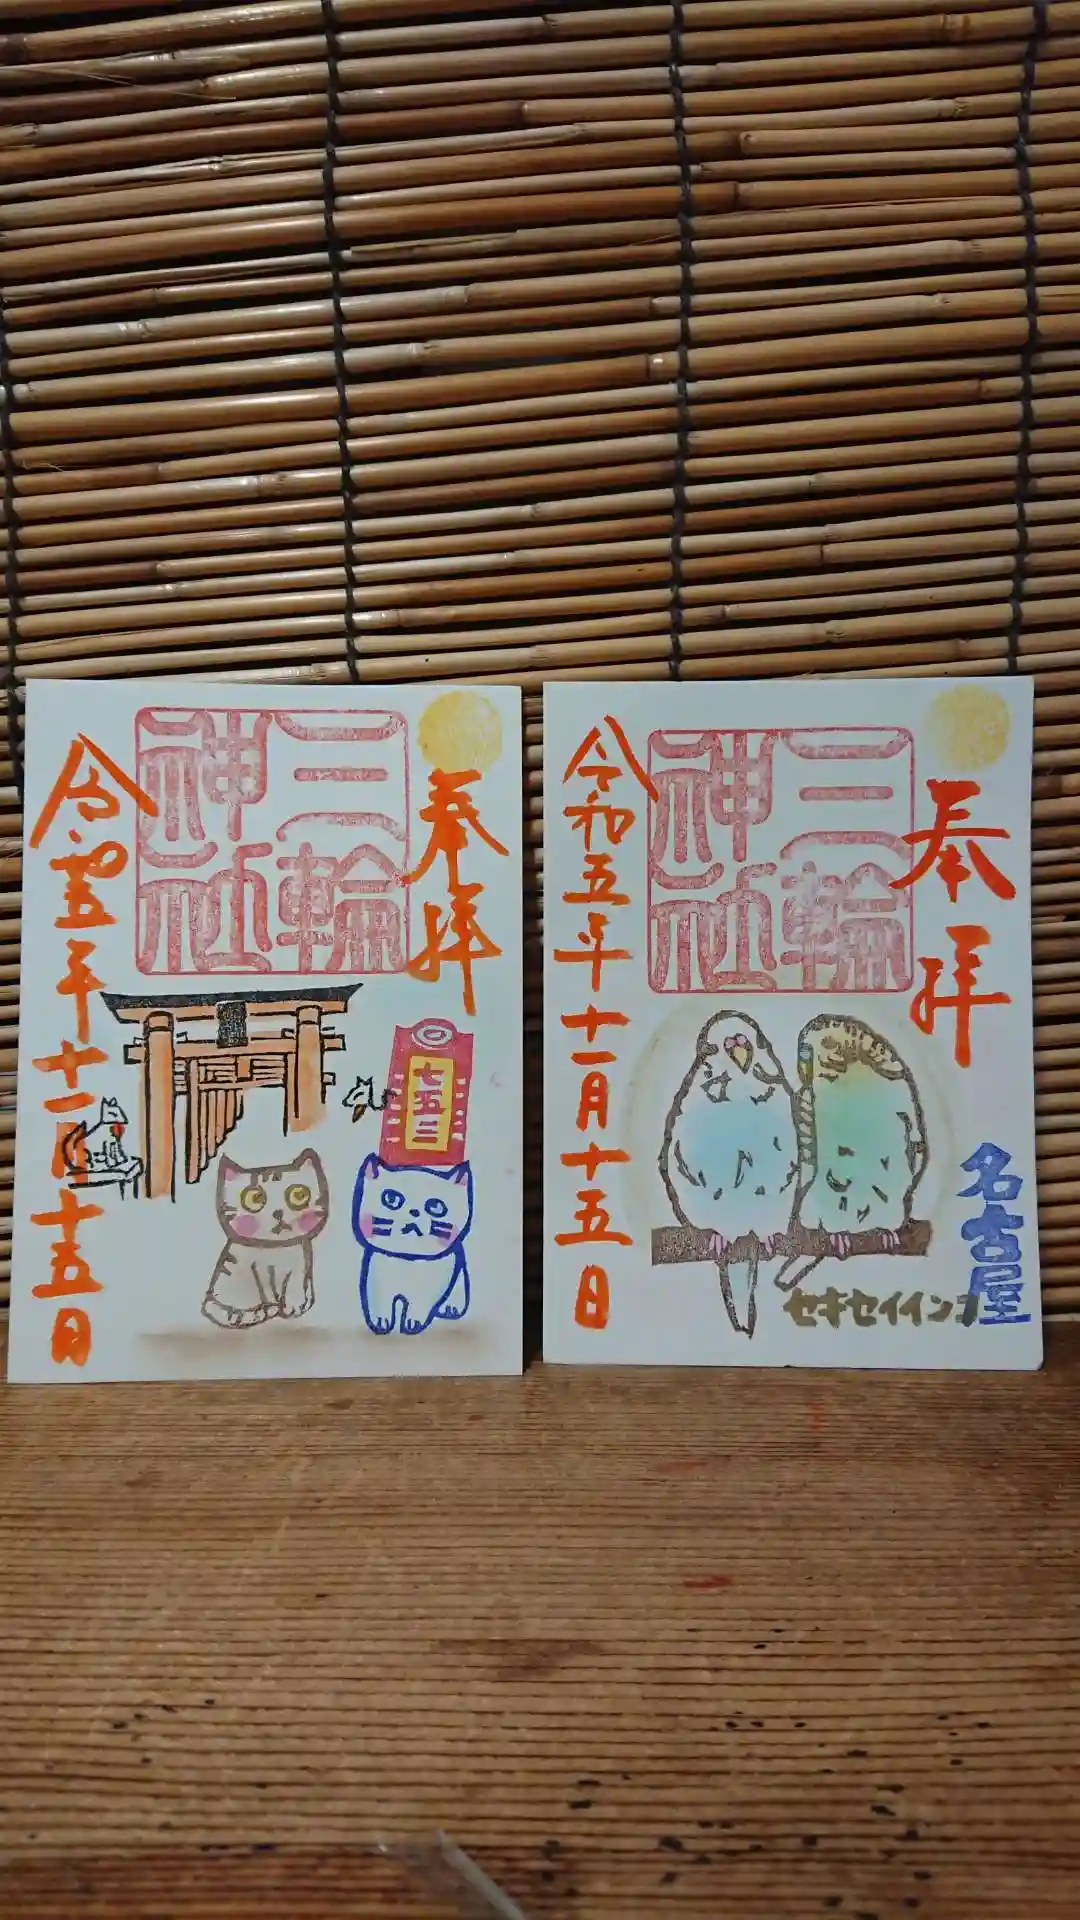 奉拝
三輪
神社
令和五年十一月十五日
七五三
奉拝
三輪
神社
令和五年十一月十五日
名古屋
セキセイインコ